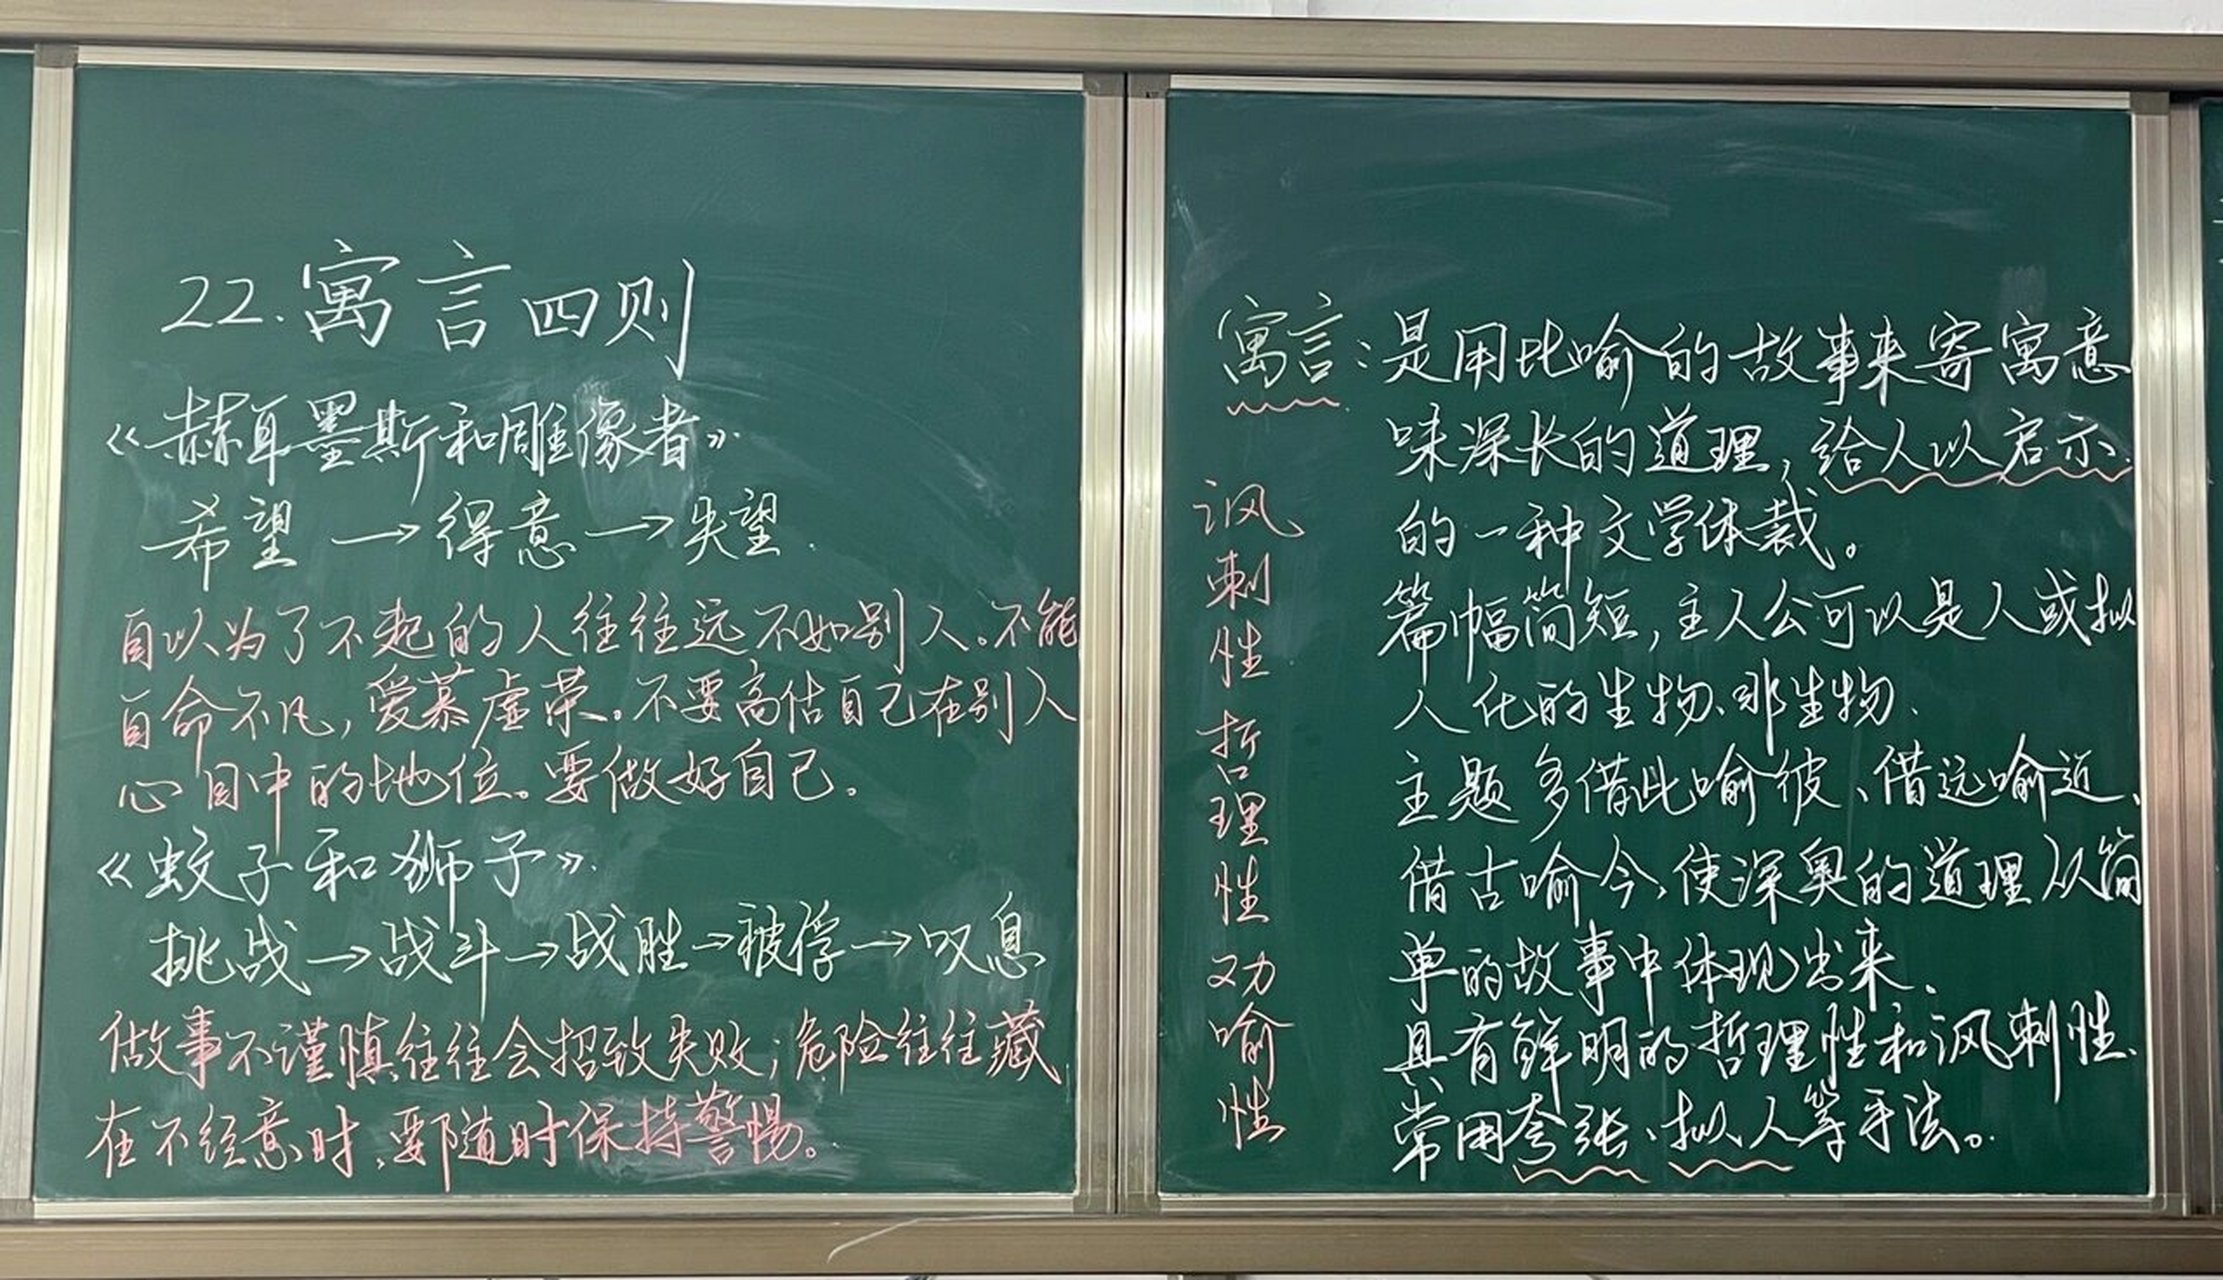 22.寓言四则
《赫耳墨斯和雕像者》
希望→得意→失望.
自以为了不起的人往往远不如别人。不能
自命不凡,爱慕虚荣。不要高估自己在别人
心目中的地位。要做好自己。
《蚊子和狮子》
挑战→战斗→战胜→被俘→叹息
做事不谨慎往往会招致失败;危险往往藏
在不经意时,要随时保持警惕。
寓言:是用比喻的故事来寄寓意
味深长的道理,给人以启示
的一种文学体裁。
篇幅简短,主人公可以是人或拟
人化的生物、非生物.
主题多借此喻彼、借远喻近、
借古喻今,使深奥的道理从简
单的故事中体现出来.
具有鲜明的哲理性和讽刺性.
常用夸张、拟人等手法。
讽刺性 哲理性 劝喻性